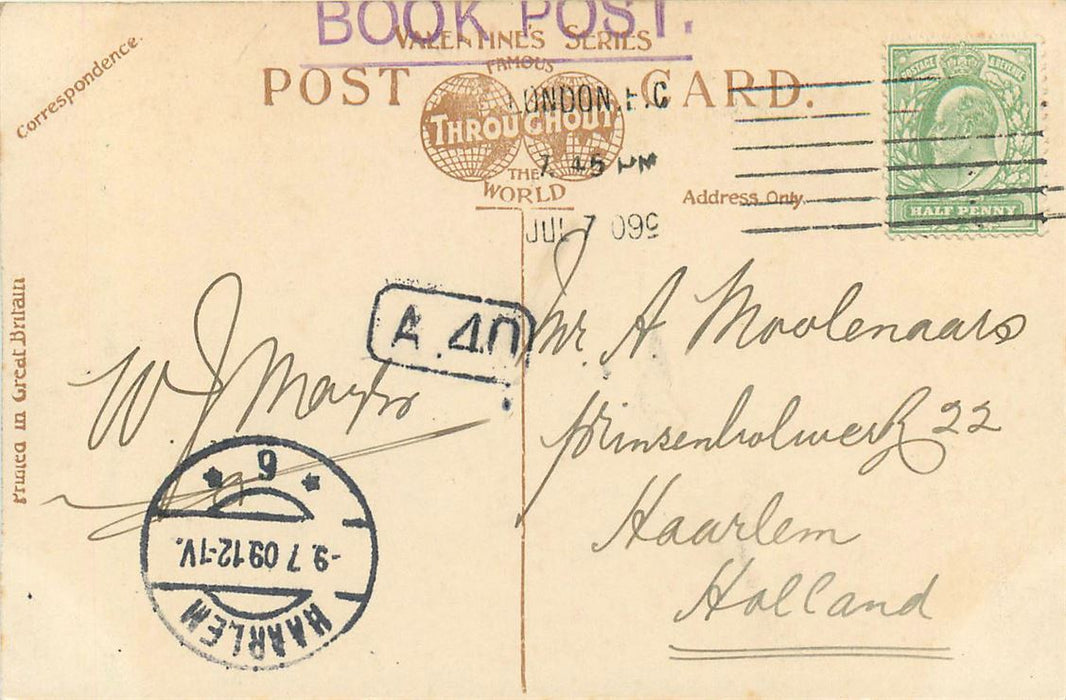 BOOK POST.
VALENTINE'S SERIES
FAMOUS
POST CARD.
THROUGHOUT
THE
WORLD
Correspondence.
Address Only.
Printed in Great Britain
LONDON. E.C
7. 45 PM
JUL 7 09
POSTAGE & REVENUE
HALF PENNY
A. 40
W J
Mr. A. Moolenaars
22
Haarlem
Holland
6
-9. 7 09.12-1V.
HAARLEM